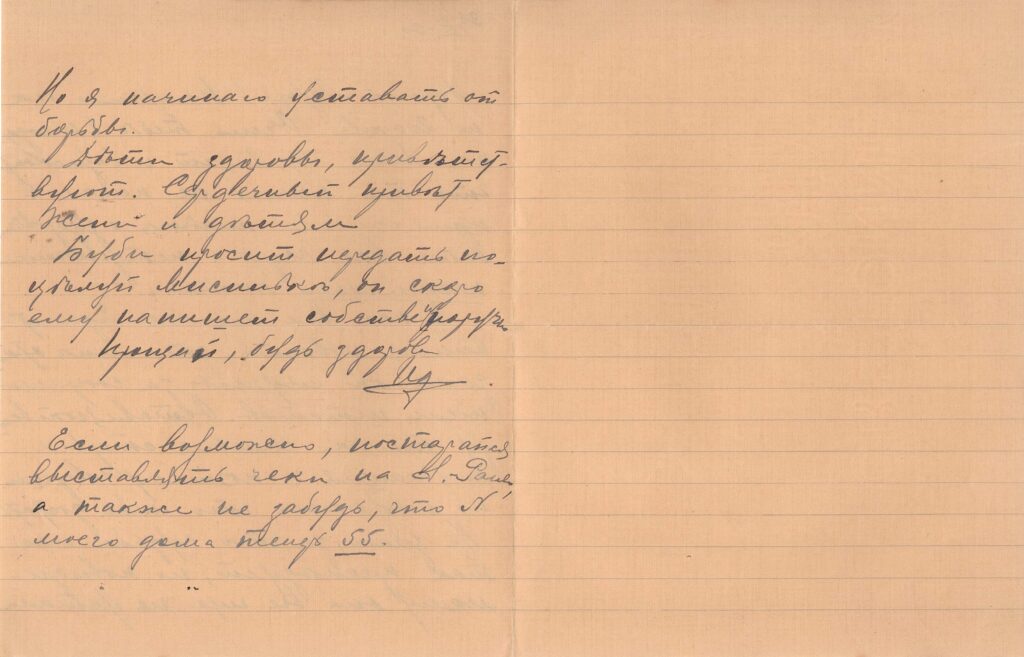 Но я начинаю уставать от
борьбы.
Дѣти здоровы, привѣтст-
вуют. Сердечный привѣт
жени и дѣтям
Буби просит передать по-
цѣлуй Мисинькѣ, он скоро
ему напишет собственноручно
Прощай, будь здоров
Если возможно, постарайся
выставлять чеки на
а также не забудь, что N
моего дома теперь 55.